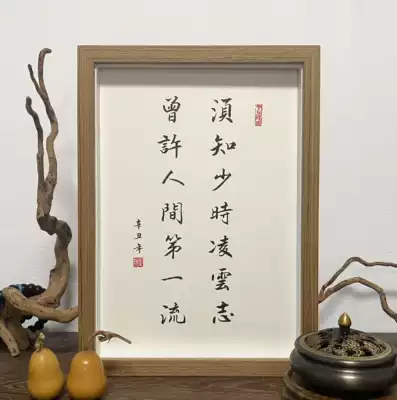 須知少時凌雲志
曾許人間第一流
辛丑年